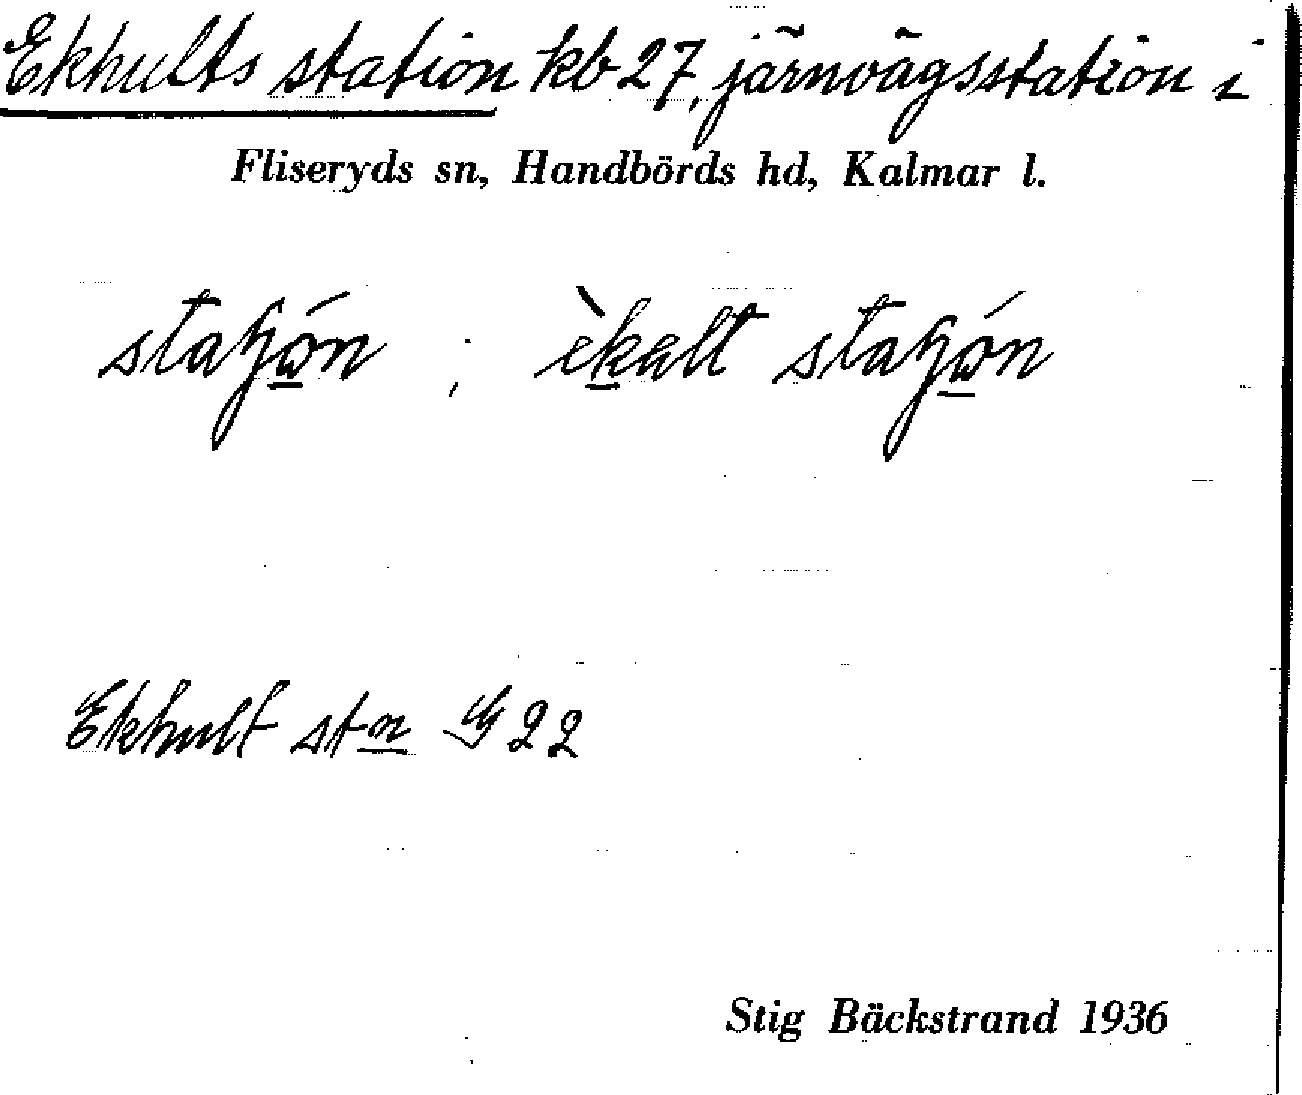 Ekhults station kb 27, järnvägsstation i
Fliseryds sn, Handbörds hd, Kalmar l.
staʃón ; èkalt staʃón
Ekhult stn G 22
Stig Bäckstrand 1936